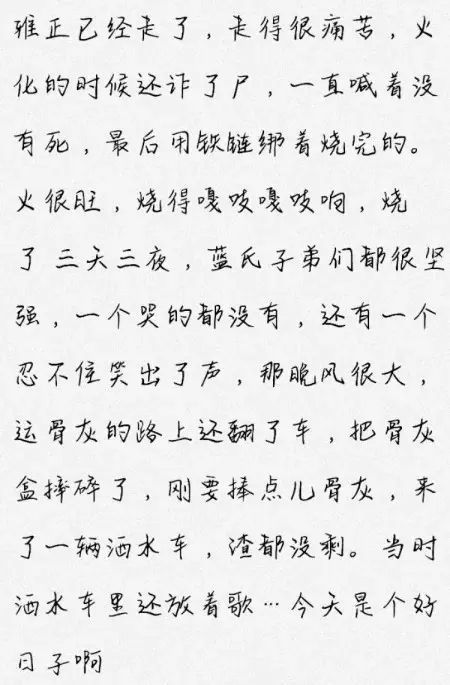 雍正已经走了，走得很痛苦，火
化的时候还诈了尸，一直喊着没
有死，最后用铁链绑着烧完的。
火很旺，烧得嘎吱嘎吱响，烧
了三天三夜，蓝氏子弟们都很坚
强，一个哭的都没有，还有一个
忍不住笑出了声，那晚风很大，
运骨灰的路上还翻了车，把骨灰
盒摔碎了，刚要捧点儿骨灰，来
了一辆洒水车，渣都没剩。当时
洒水车里还放着歌…今天是个好
日子啊